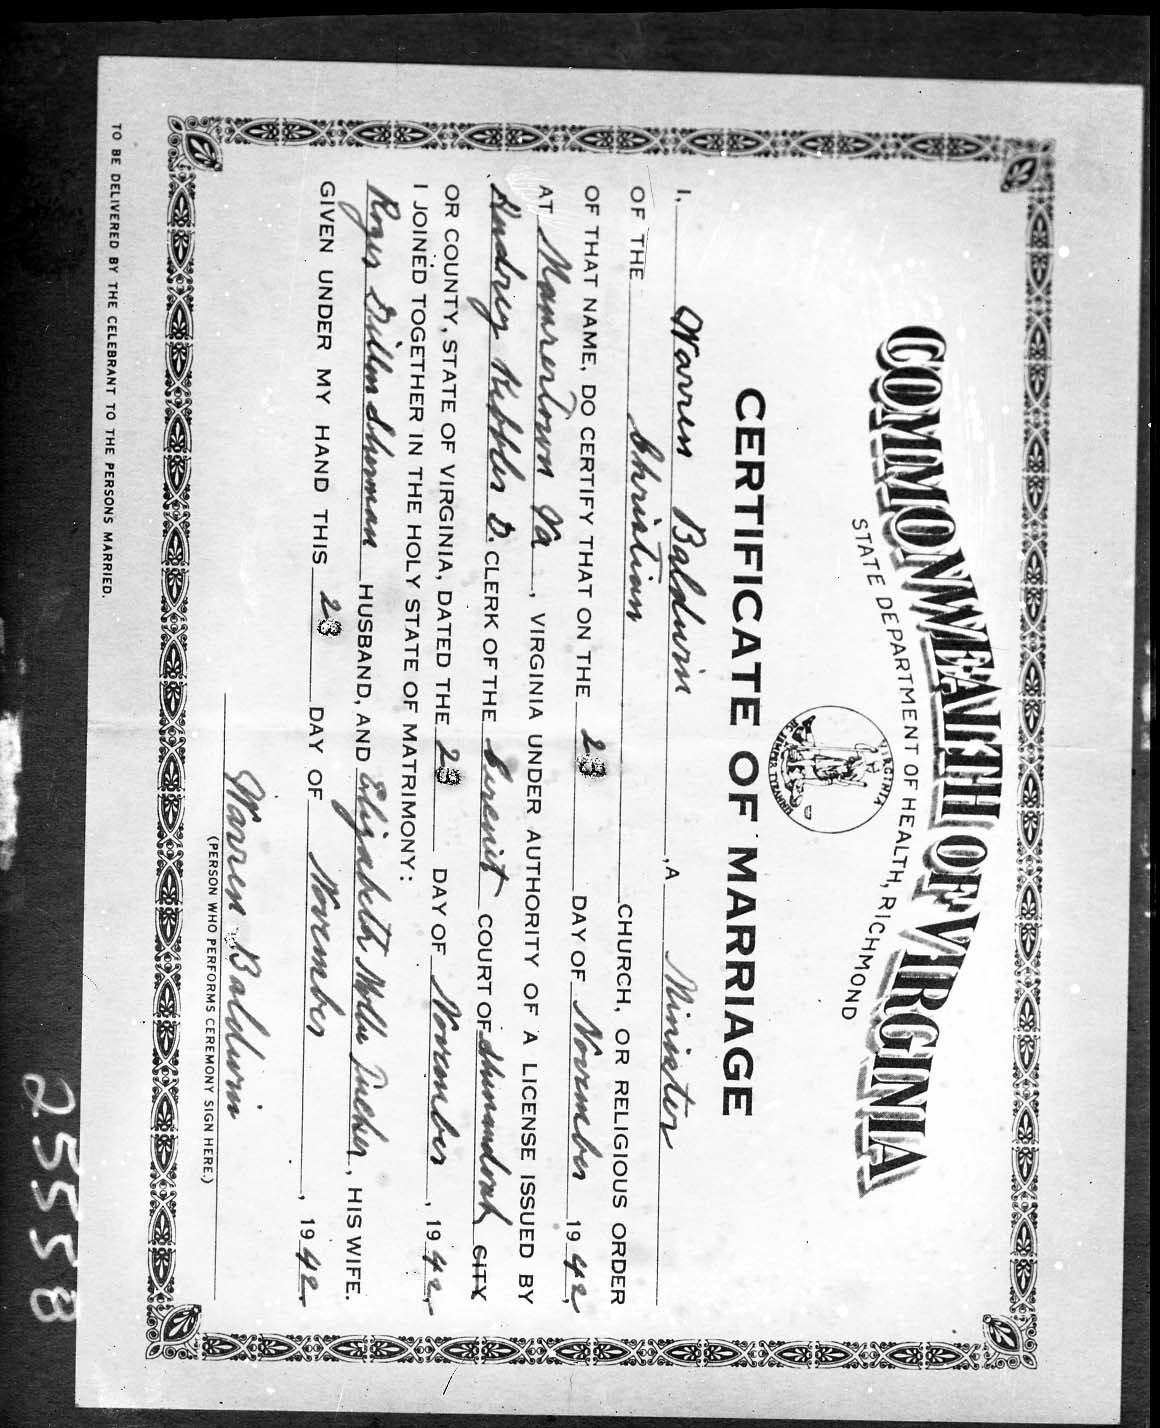 COMMONWEALTH OF VIRGINIA
STATE DEPARTMENT OF HEALTH, RICHMOND
VIRGINIA
SIC SEMPER TYRANNIS
CERTIFICATE OF MARRIAGE
I, Warren Baldwin, A Minister
OF THE Christian CHURCH, OR RELIGIOUS ORDER
OF THAT NAME, DO CERTIFY THAT ON THE 23 DAY OF November 1942,
AT Maurertown Va, VIRGINIA UNDER AUTHORITY OF A LICENSE ISSUED BY
Audrey Kibbler D. CLERK OF THE Circuit COURT OF CITY
OR COUNTY, STATE OF VIRGINIA, DATED THE 23 DAY OF November, 1942,
I JOINED TOGETHER IN THE HOLY STATE OF MATRIMONY:
Dillon Shuman HUSBAND, AND Elizabeth , HIS WIFE.
GIVEN UNDER MY HAND THIS 23 DAY OF November, 1942.
Warren Baldwin
(PERSON WHO PERFORMS CEREMONY SIGN HERE.)
TO BE DELIVERED BY THE CELEBRANT TO THE PERSONS MARRIED.
25558